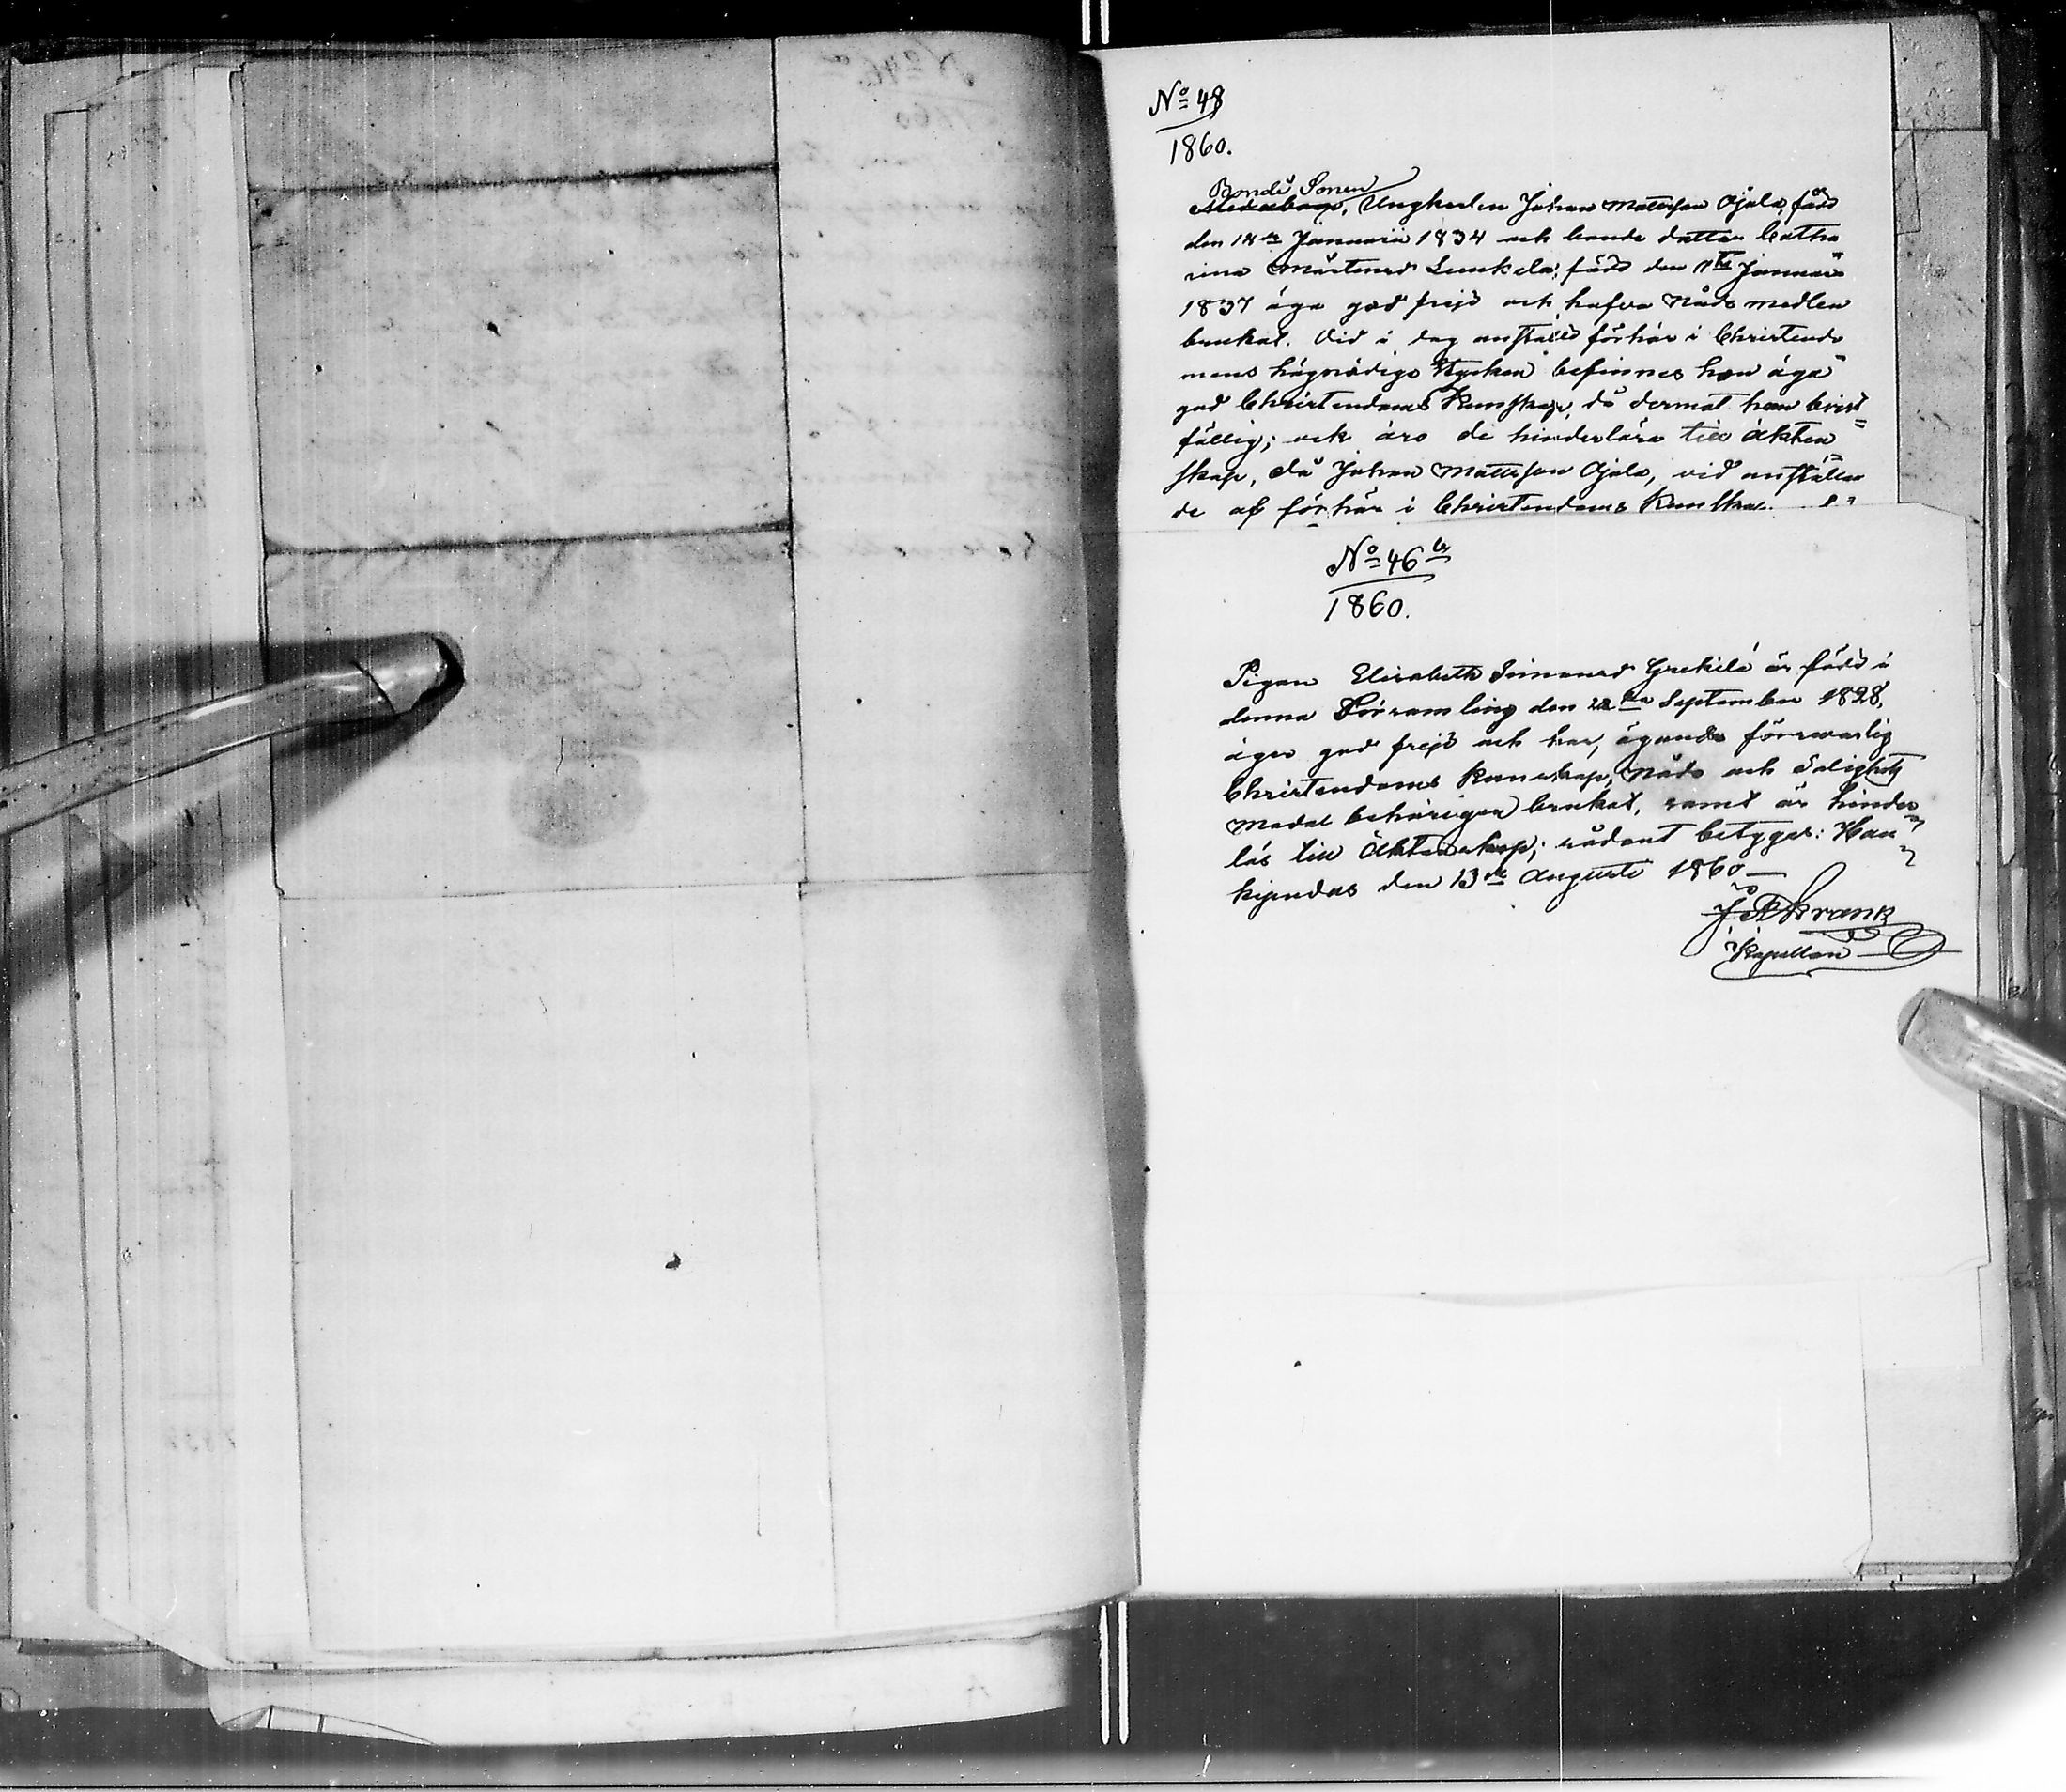 No 48
1860.
Bonde Sonen
Ungkarlen Johan Mattsson Ojala, född
den 18de Januarii 1834 och bonde dotter Catha
rina Mårtensd Lunkela, född den 1sta Januari
1837 äga god frejd och hafva Nåds medlen
brukat. Vid i dag anstäldt förhör i Christendo
mens högnödiga stycken befinnes hon äga
god Christendoms Kunskap, då deremot han brist
fällig; och äro de hinderlösa till äkten
skap, då Johan Mattsson Ojala, vid anställan
de af förhör i Christendoms Kunskap
No 46 b
1860.
Pigan Elisabeth Simonsd Grekilä är född i
denna Församling den 22dra September 1828,
äger god frejd och har, ägande försvarlig
Christendoms kunskap, Nåds och Salighets
Medel behörigen brukat, samt är hinder
lös till Äktenskap; sådant betygar: Hau
kipudas den 13de Augusti 1860
Kapellan